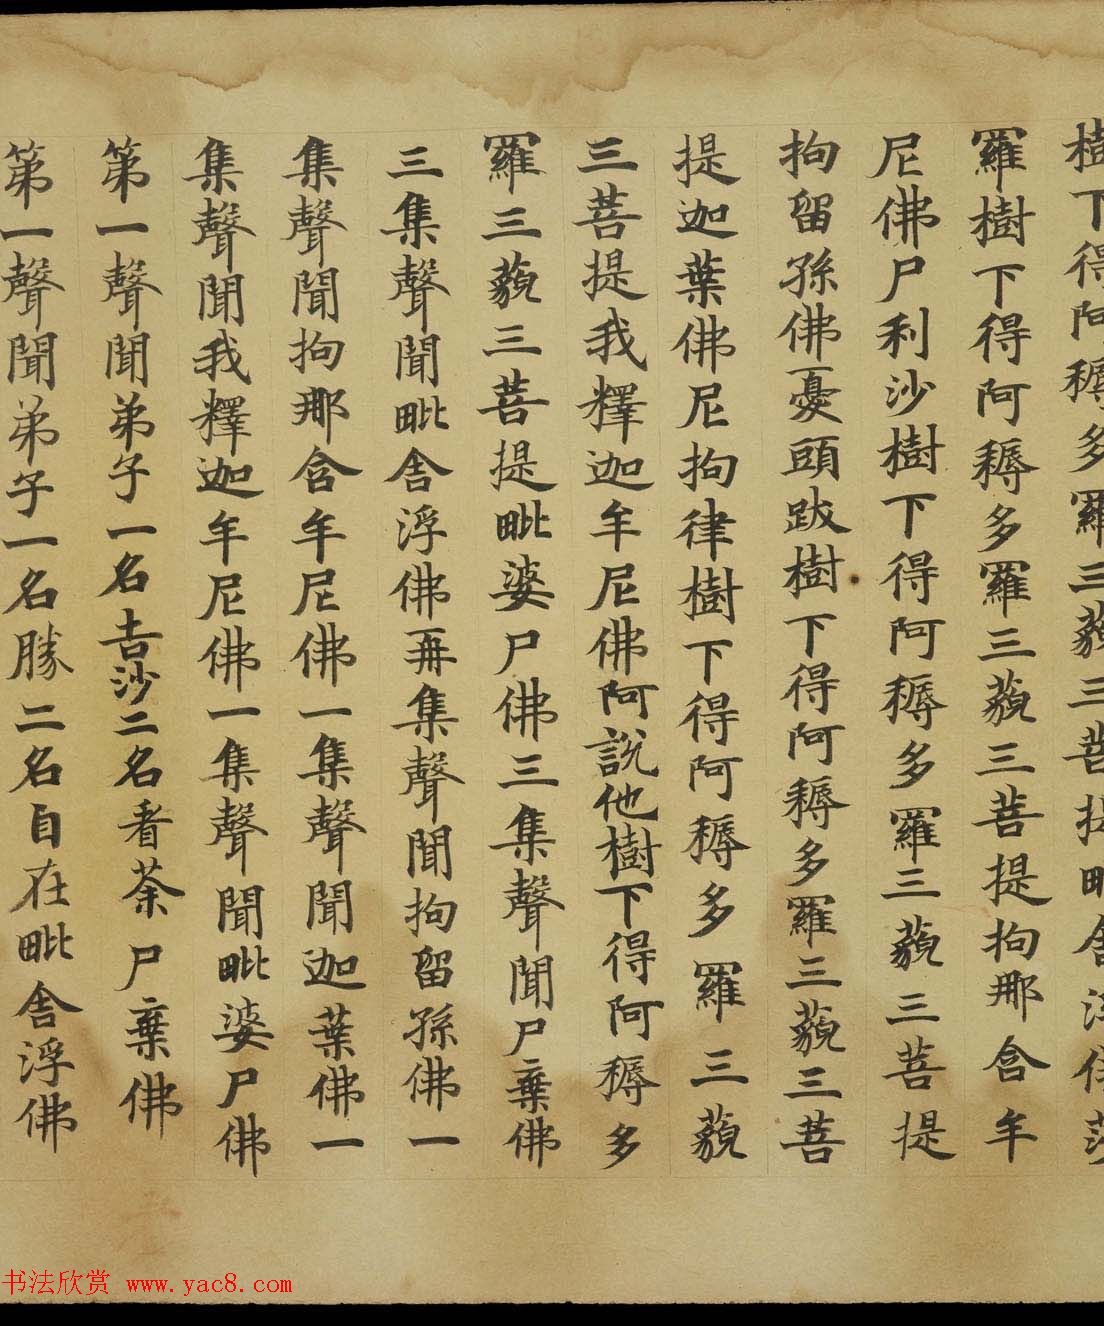 樹下得阿耨多羅三藐三菩提毗舍浮佛莎
羅樹下得阿耨多羅三藐三菩提拘那含牟
尼佛尸利沙樹下得阿耨多羅三藐三菩提
拘留孫佛憂頭跋樹下得阿耨多羅三藐三菩
提迦葉佛尼拘律樹下得阿耨多羅三藐
三菩提我釋迦牟尼佛阿說他樹下得阿耨多
羅三藐三菩提毗婆尸佛三集聲聞尸棄佛
三集聲聞毗舍浮佛再集聲聞拘留孫佛一
集聲聞拘那含牟尼佛一集聲聞迦葉佛一
集聲聞我釋迦牟尼佛一集聲聞毗婆尸佛
第一聲聞弟子一名吉沙二名看荼尸棄佛
第一聲聞弟子一名勝二名自在毗舍浮佛
书法欣赏 www.yac8.com